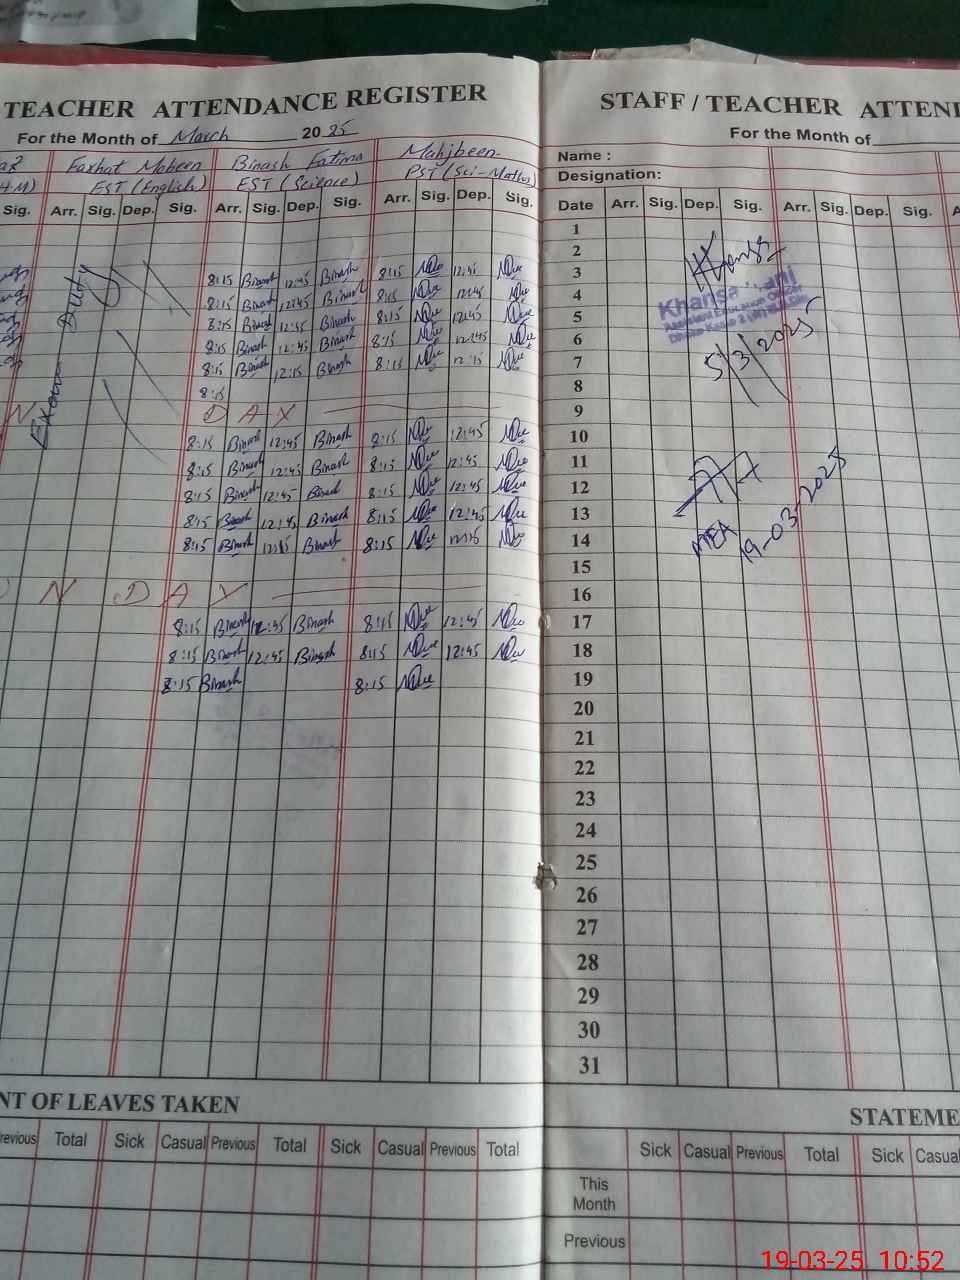 TEACHER ATTENDANCE REGISTER
For the Month of March 2025
Farhat Mobeen Binash Fatima Mahjbeen
EST (English) EST (Science) PST (Sci-Maths)
Sig. Arr. Sig. Dep. Sig. Arr. Sig. Dep. Sig. Arr. Sig. Dep. Sig.
Exam Duty
8:15 Binash 12:45 Binash 8:15 12:45
8:15 Binash 12:45 Binash 8:15 12:45
8:15 Binash 12:45 Binash 8:15 12:45
8:15 Binash 12:45 Binash 8:15 12:45
8:15 Binash 12:15 Binash 8:15 12:15
8:15
N D A Y
8:15 Binash 12:45 Binash 8:15 12:45
8:15 Binash 12:45 Binash 8:15 12:45
8:15 Binash 12:45 Binash 8:15 12:45
8:15 Binash 12:45 Binash 8:15 12:45
8:15 Binash Binash 8:15 12:15
N D A Y
8:15 Binash 12:45 Binash 8:15 12:45
8:15 Binash 12:45 Binash 8:15 12:45
8:15 Binash 8:15
NT OF LEAVES TAKEN
Previous Total Sick Casual Previous Total Sick Casual Previous Total
STAFF / TEACHER ATTEND
For the Month of
Name :
Designation:
Date Arr. Sig. Dep. Sig. Arr. Sig. Dep. Sig. A
1
2
3
4
5
6
7
8
9
10
11
12
13
14
15
16
17
18
19
20
21
22
23
24
25
26
27
28
29
30
31
Khansa
Assistant Education Officer
5/3/2025
MEA
19-03-2025
STATEME
Sick Casual Previous Total Sick Casual
This
Month
Previous
19-03-25 10:52